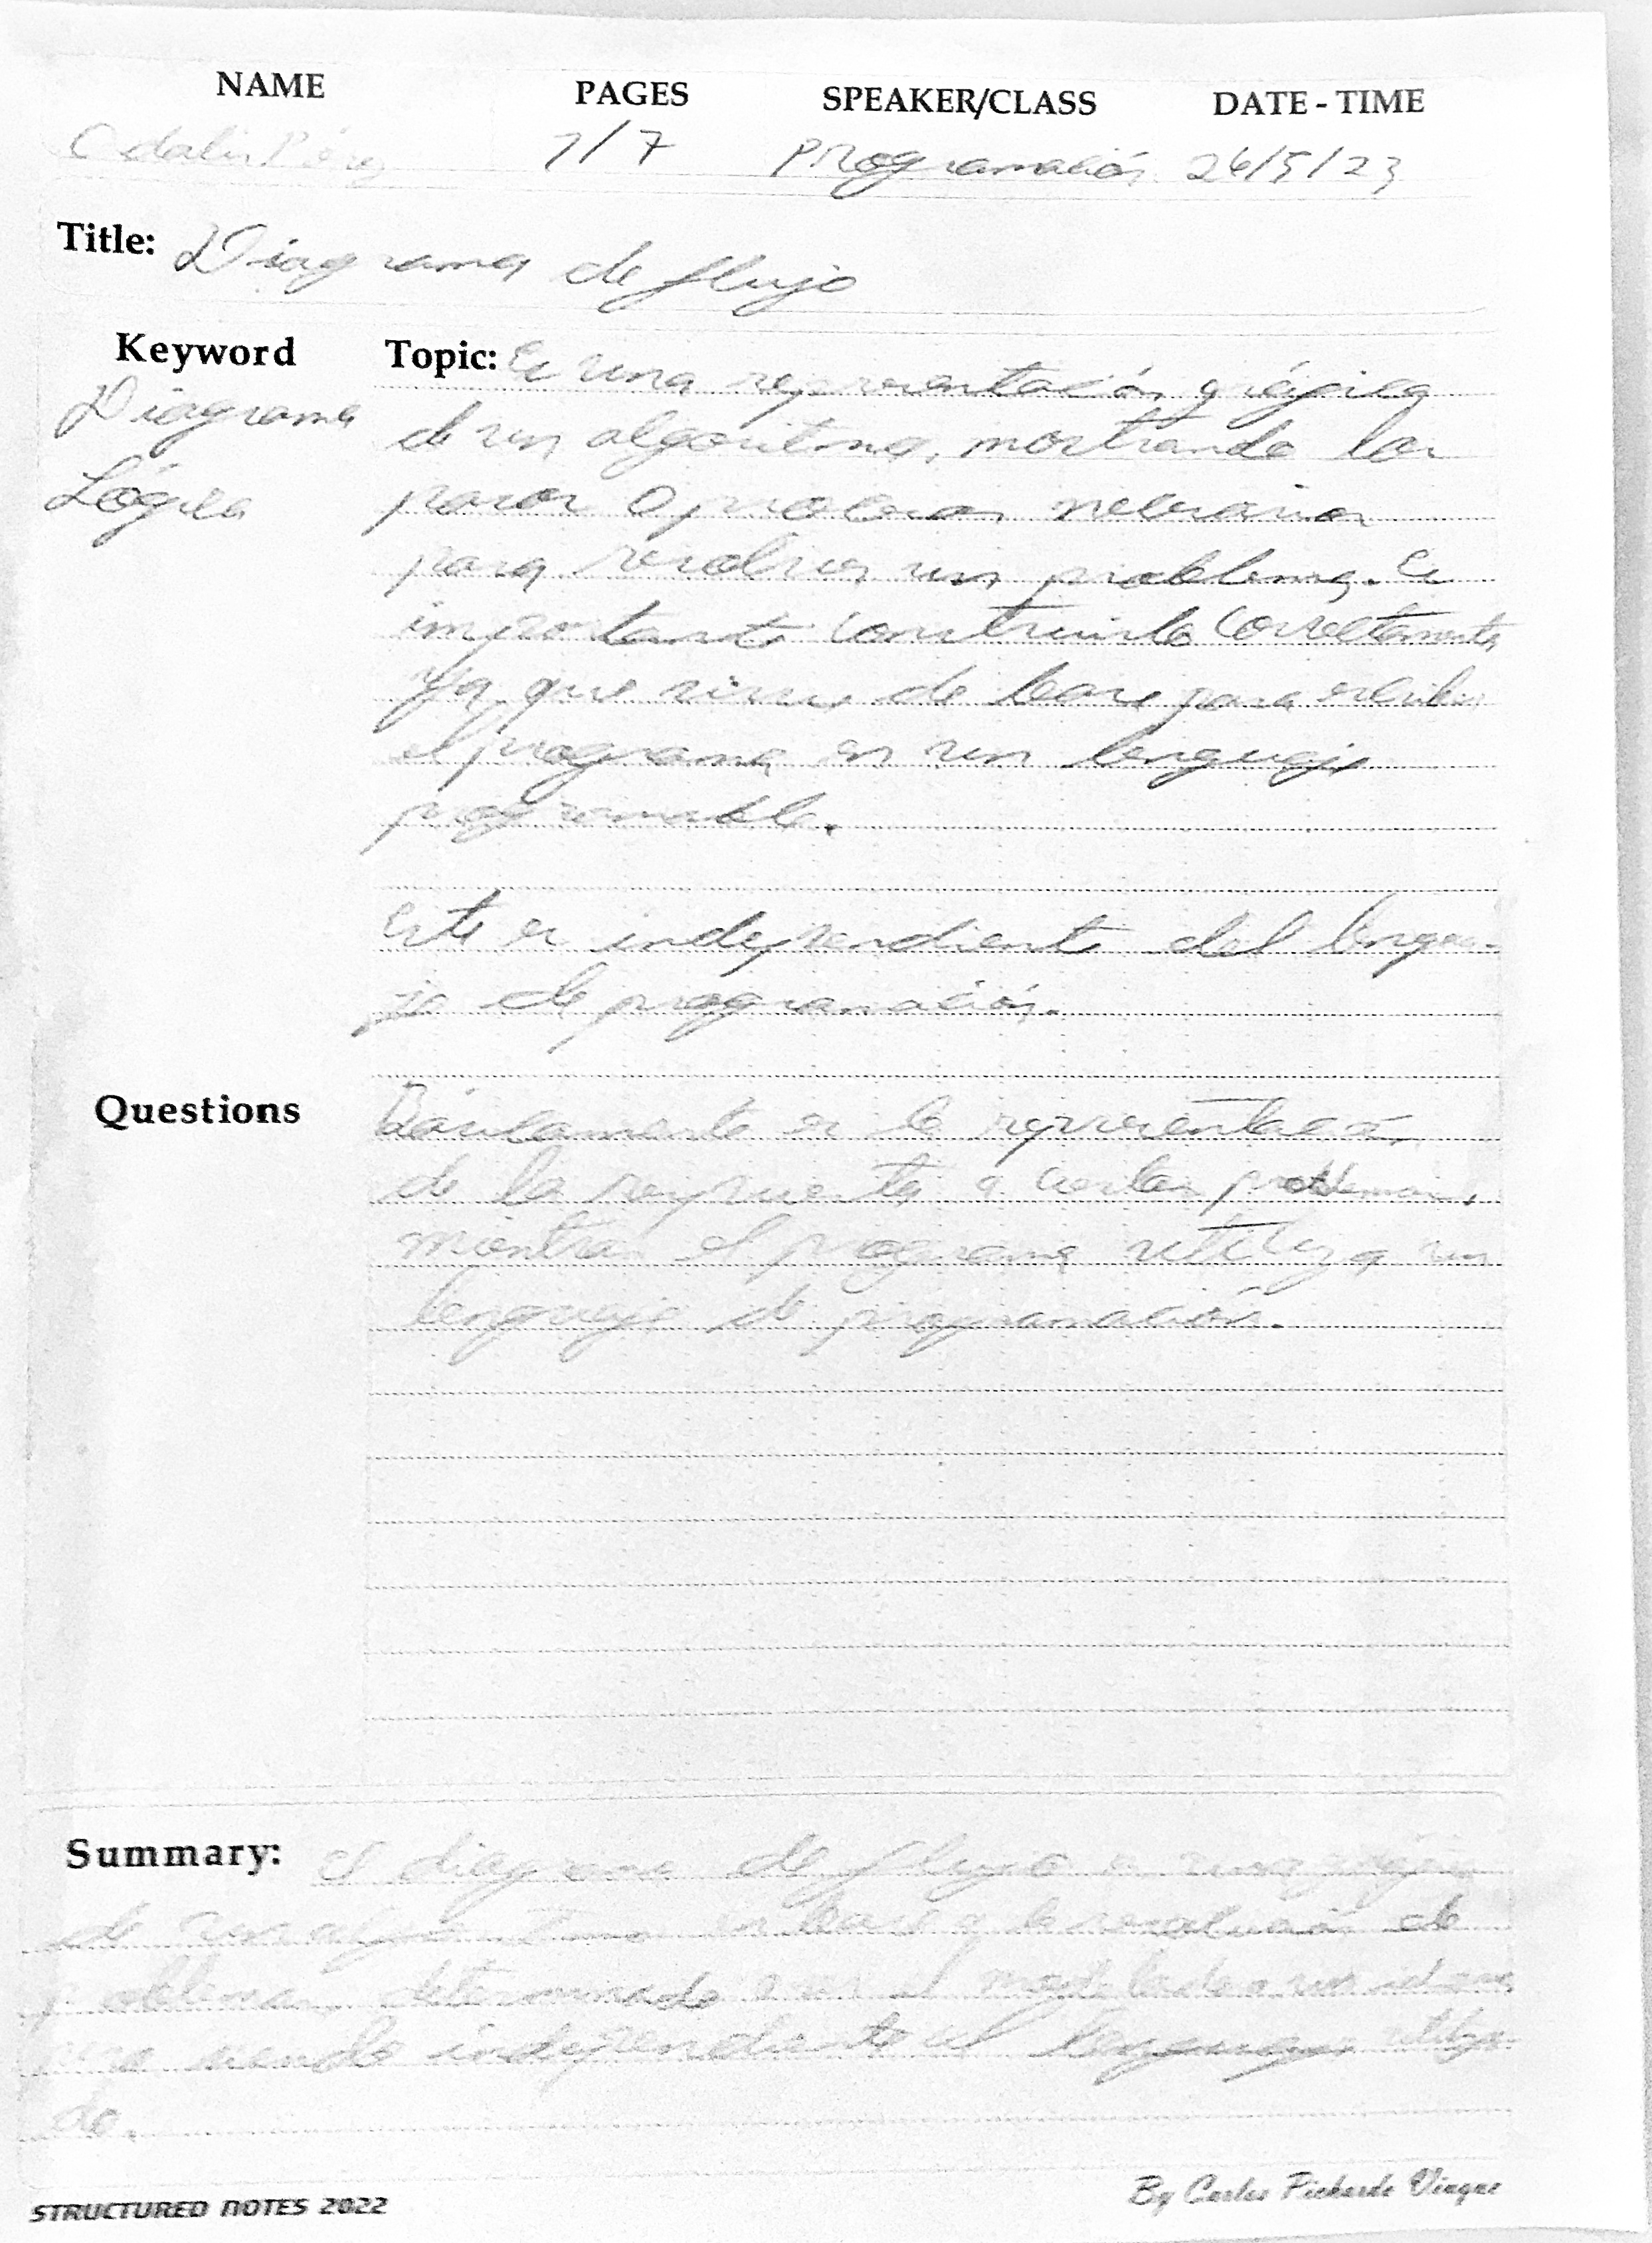 NAME PAGES SPEAKER/CLASS DATE - TIME
Odalis Pérez 1/7 Programación 26/5/23
Title: Diagrama de flujo
Keyword Topic: Es una representación gráfica
Diagrama de un algoritmo, mostrando los
Lógica pasos o procesos necesarios
para resolver un problema. Es
importante construirlo correctamente
Ya que sirve de base para escribir
el programa en un lenguaje
programable.
Este es independiente del lengua-
je de programación.
Questions Básicamente es la representación
de la respuesta a ciertos problemas,
mientras el programa utiliza un
lenguaje de programación.
Summary: El diagrama de flujo es una
de en base a la resolución de
problemas determinado
siendo independiente el lenguaje utiliza-
do.
STRUCTURED NOTES 2022 By Carlos Pichardo Vinque